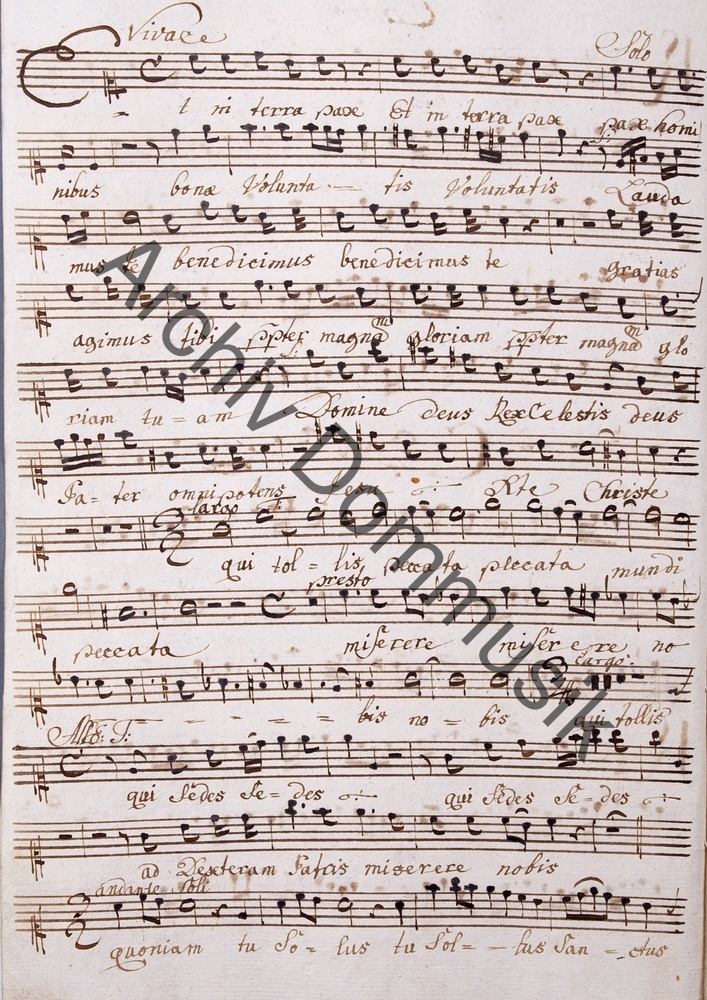 Vivace
Solo
t in terra pax Et in terra pax pax homi
nibus bonæ Volunta - tis Voluntatis Lauda
mus te benedicimus benedicimus te gratias
agimus tibi ppter magnā gloriam ppter magnā glo
riam tu = am Domine deus Rex Celestis deus
Pa = ter omnipotens Jesu Xte Christe
largo
qui tol = lis peccata peccata mundi
presto
peccata miserere miserere no
largo
- - - - - bis no = bis qui tollis
Allo:
qui sedes se = des qui sedes se = des
ad Dexteram Patris miserere nobis
andante soli
quoniam tu So = lus tu Sol = - lus San = ctus
Archiv Dommusik